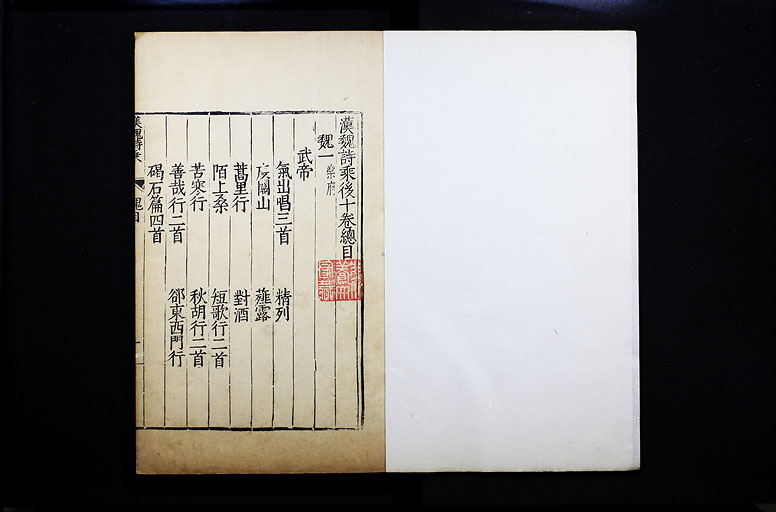 漢魏詩乘後十卷總目
魏一 樂府
武帝
氣出唱三首 精列
度關山 薤露
蒿里行 對酒
陌上桑 短歌行二首
苦寒行 秋胡行二首
善哉行二首 郤東西門行
碣石篇四首
漢魏詩乘
魏目